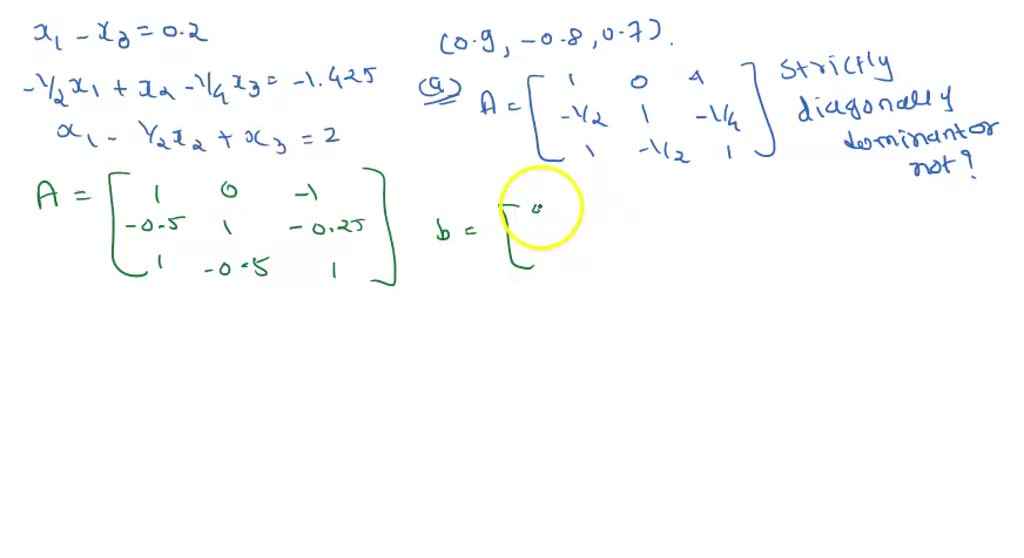 x₁ - x₃ = 0.2
-1/2x₁ + x₂ - 1/4x₃ = -1.425
x₁ - 1/2x₂ + x₃ = 2
(0.9, -0.8, 0.7).
(a) A = [ 1 0 4
-1/2 1 -1/4
1 -1/2 1 ]
strictly
diagonally
dominant or
not?
A = [ 1 0 -1
-0.5 1 -0.25
1 -0.5 1 ]
b = [ 0